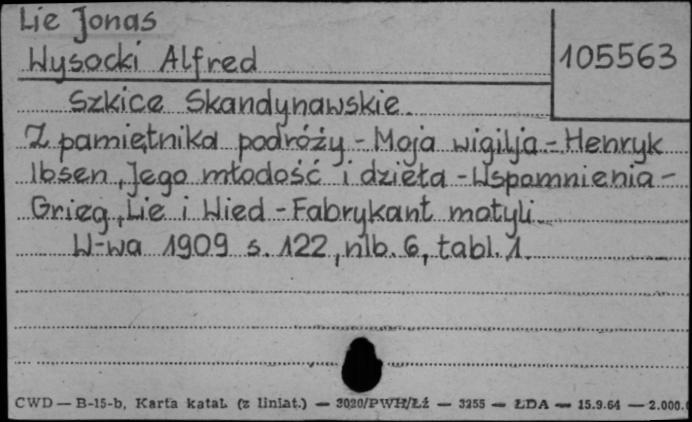 Lie Jonas
Wysocki Alfred
105563
Szkice Skandynawskie.
Z pamiętnika podróży - Moja wigilja - Henryk
Ibsen, Jego młodość i dzieła - Wspomnienia -
Grieg, Lie i Wied - Fabrykant motyli.
W-wa 1909 s. 122, nlb. 6, tabl. 1.
CWD — B-15-b, Karta katal. (z liniat.) — 3020/PWH/Łź — 3255 — ŁDA — 15.9.64 — 2.000.